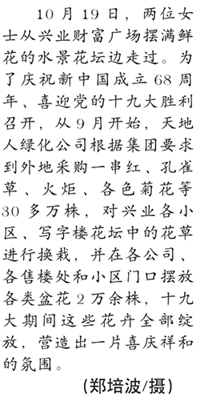 10月19日，两位女
士从兴业财富广场摆满鲜
花的水景花坛边走过。为
了庆祝新中国成立68周
年、喜迎党的十九大胜利
召开，从9月开始，天地
人绿化公司根据集团要求
到外地采购一串红、孔雀
草、火炬、各色菊花等
30多万株，对兴业各小
区、写字楼花坛中的花草
进行换栽，并在各公司、
各售楼处和小区门口摆放
各类盆花2万余株，十九
大期间这些花卉全部绽
放，营造出一片喜庆祥和
的氛围。
(郑培波/摄)